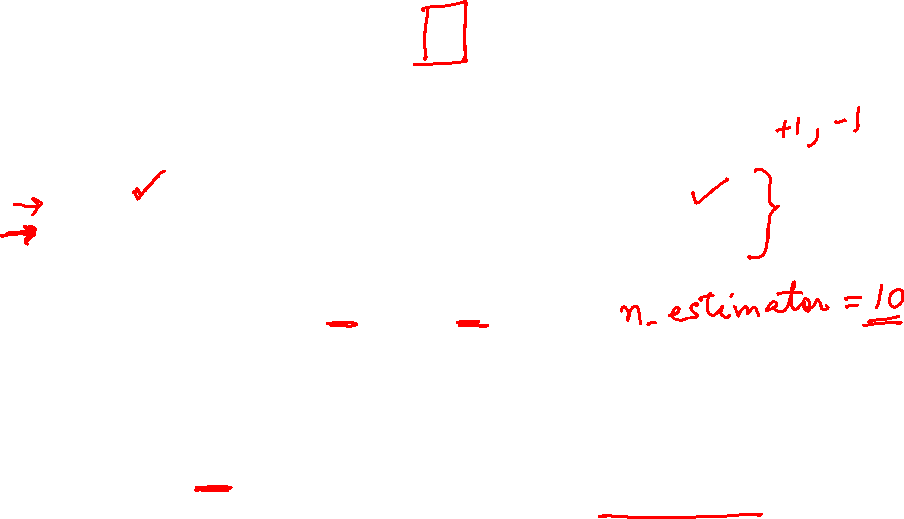 +1, -1
n_estimator = 10